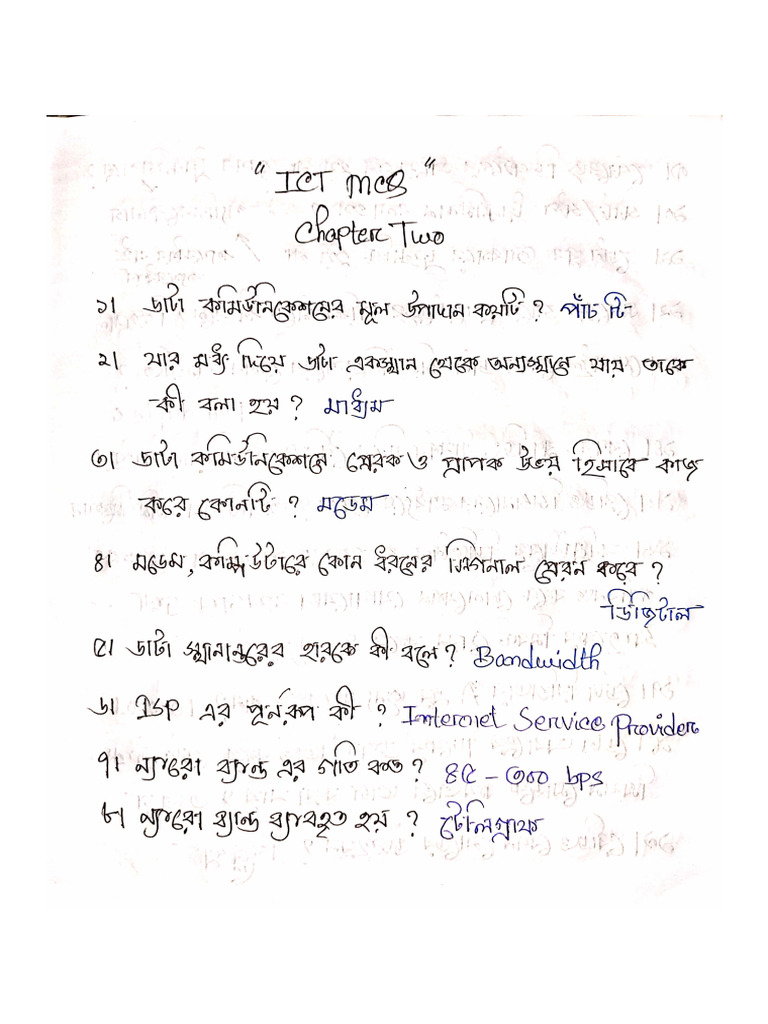 "ICT MCQ"
Chapter Two
১। ডাটা কমিউনিকেশনের মূল উপাদান কয়টি ? পাঁচ টি
২। যার মধ্য দিয়ে ডাটা একস্থান থেকে অন্যস্থানে যায় তাকে
কী বলা হয় ? মাধ্যম
৩। ডাটা কমিউনিকেশনে প্রেরক ও প্রাপক উভয় হিসাবে কাজ
করে কোনটি ? মডেম
৪। মডেম, কম্পিউটারে কোন ধরনের সিগনাল প্রেরন করে ?
ডিজিটাল
৫। ডাটা স্থানান্তরের হারকে কী বলে ? Bandwidth
৬। ISP এর পূর্নরূপ কী ? Internet Service Provider
৭। ন্যারো ব্যান্ড এর গতি কত ? ৪৫ - ৩০০ bps
৮। ন্যারো ব্যান্ড ব্যাবহৃত হয় ? টেলিগ্রাফ